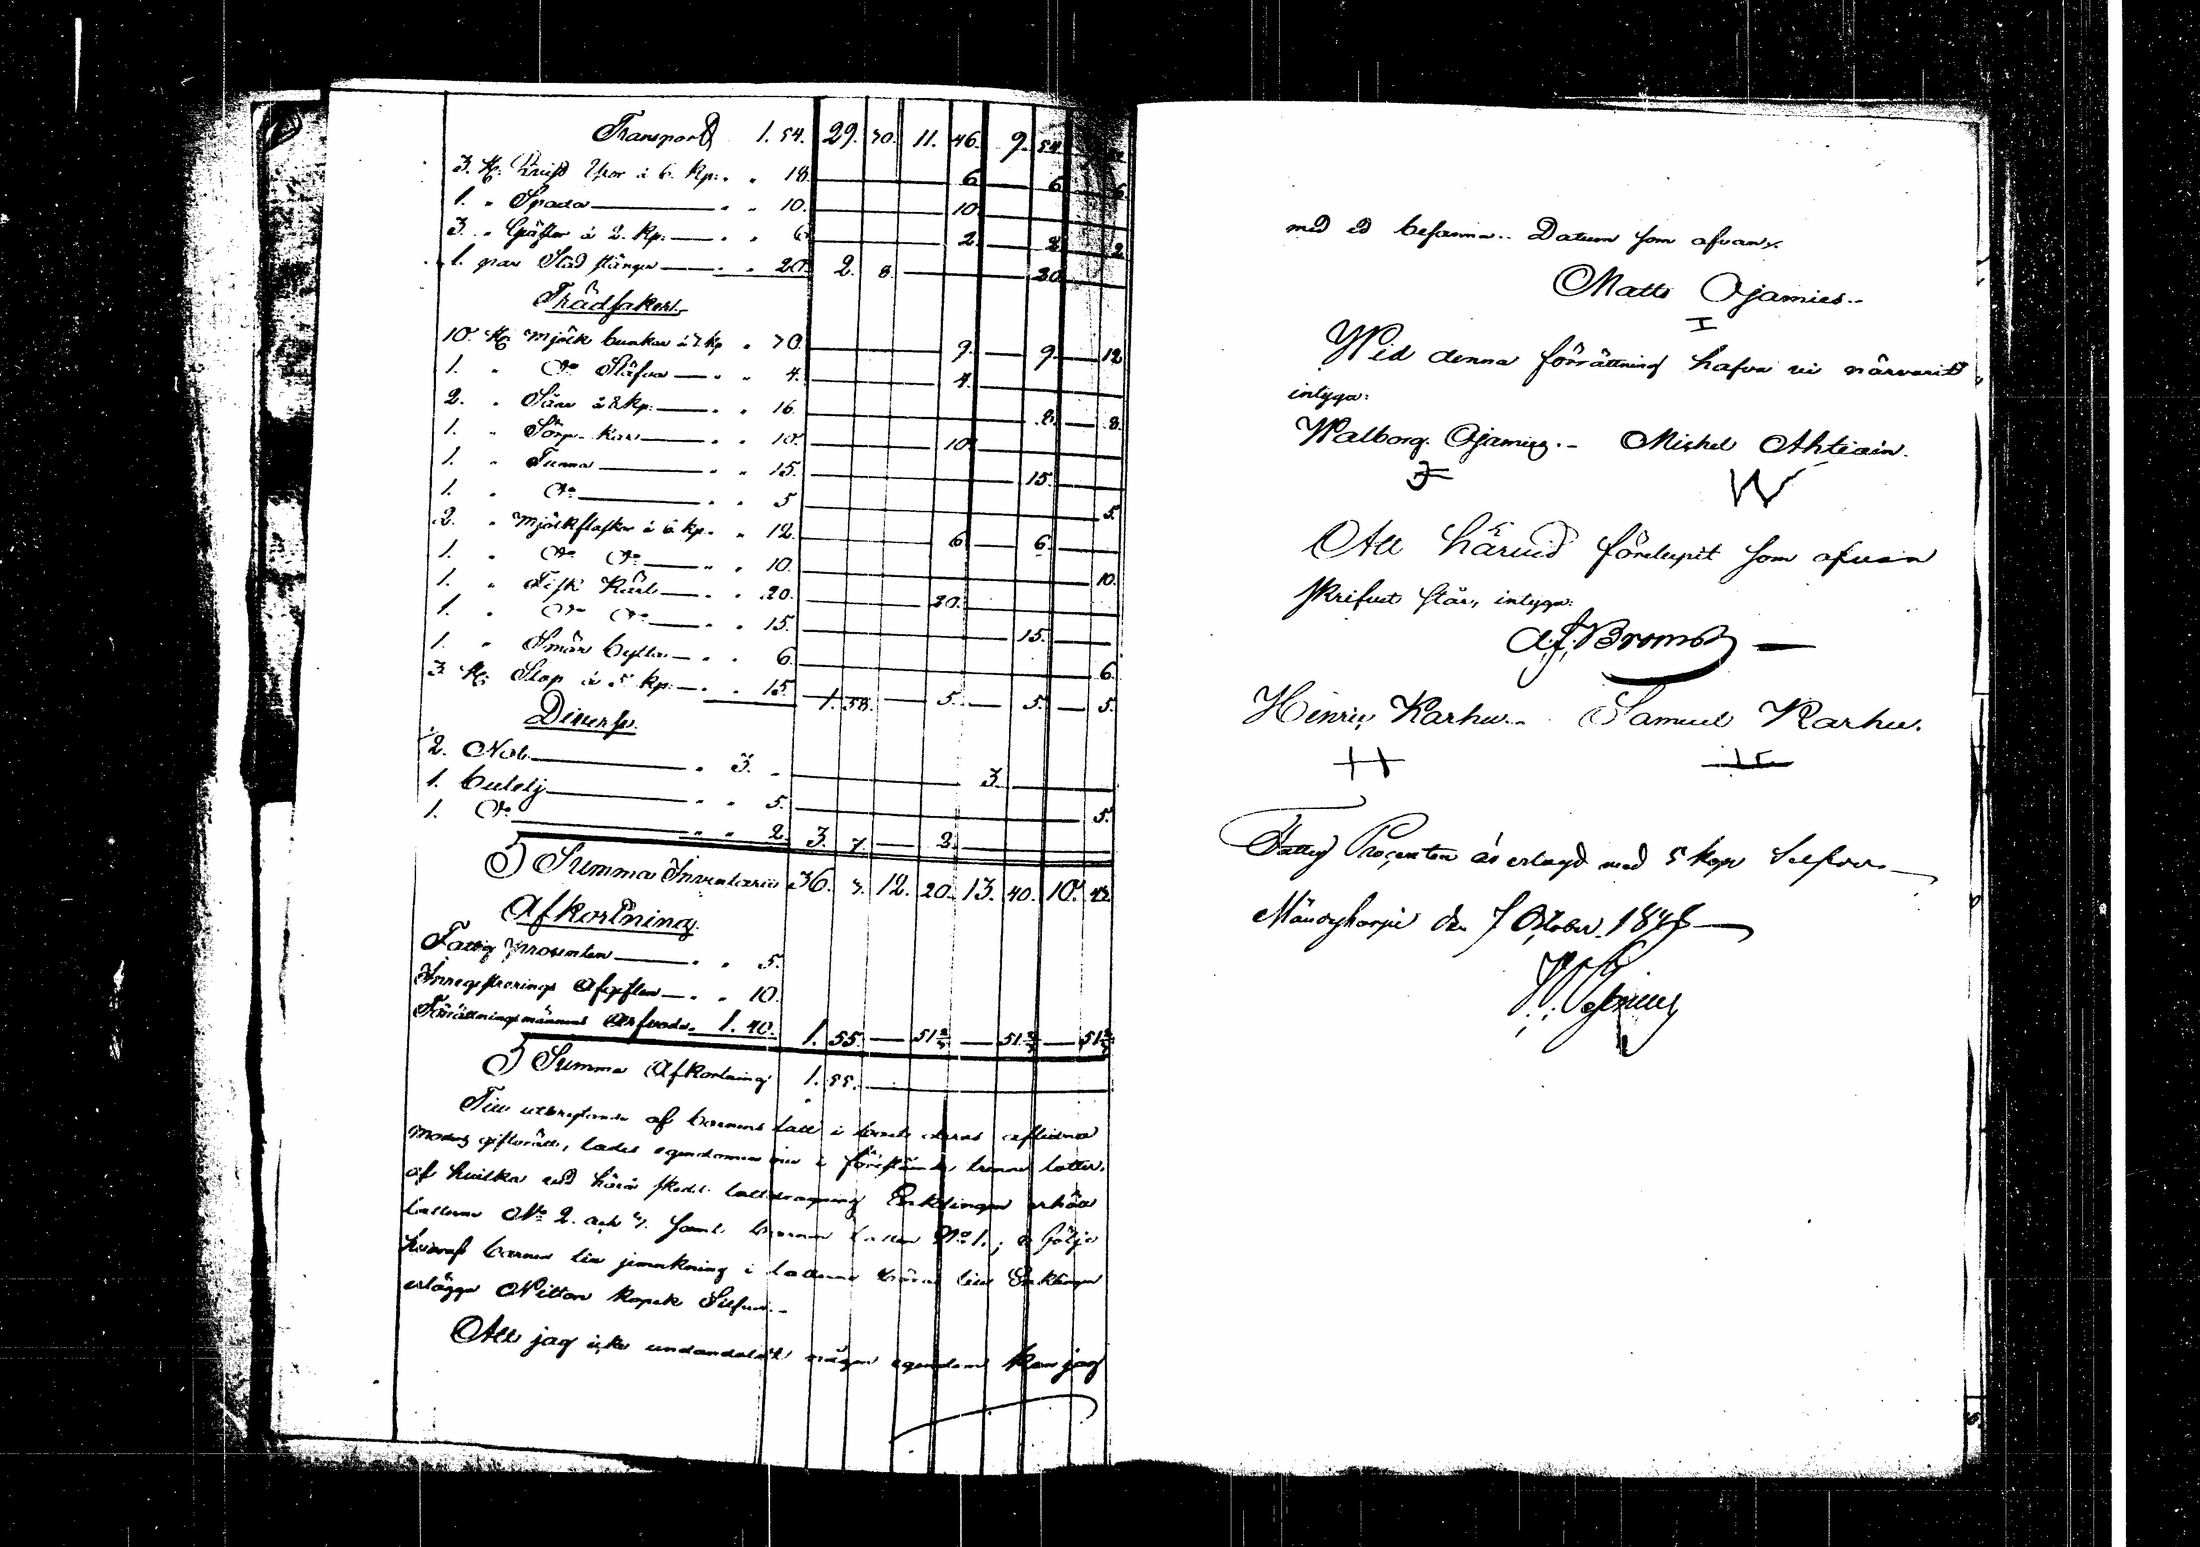 Transport 1. 54. 29. 70. 11. 46. 9. 54.
3. st. Uxor à 6. kp. " " 18. 6. 6. 6.
1. " Spada " " 10. 10.
3. " Gafflar à 2. kp. " " 6. 2. 2. 2.
1. par Släd stänger " " 20. 2. 8. 20.
Trädsaker.
10. st. Mjölk bunkar à 7 kp " 70. 9. 9. 12
1. " Do Stäfva " " 4. 4.
2. " Såar à 8 kp. " " 16. 8. 8.
1. " Sörp kar " " 10. 10.
1. " Tunna " " 15. 15.
1. " Do " " 5 5.
2. " Mjölkflaskor à 6 kp. " " 12. 6 6.
1. " Do Do " " 10. 10.
1. " Fisk Kärl " " 20. 20.
1. " Do Do " " 15. 15.
1. " Smör bytta " " 6. 6.
3. st. Stop à 5 kp. " " 15. 1. 58. 5. 5. 5.
Diverse.
2. Not " 3. " 3.
1. butelj " " 5. 5.
1. Do " " 2. 3. 7. 2.
Summa Inventarii 36. 7. 12. 20. 13. 40. 10. 47.
Afkortning.
Fattig procenten " " 5.
Inregistrerings Afgiften " " 10.
Förättningsmännens Arfvode " 1. 40. 1. 55. 51 2/3 51 2/3 51 2/3
Summa Afkortning 1. 55.
Till utbrytande af barnens lott i boet deras aflidna
moders giftorätt, lades egendomen uti i förestående trenne lotter,
af hvilka vid härå skedd lottdragning Enklingen erhöll
lotterne No 2. och 3. samt barnen lotten No 1.; i följe
hvaraf barnen till jemkning i lotterne till Enklingen
erlägga Nitton kopek Silfver.
Att jag icke undandolt någon egendom kan jag
med ed besanna. Datum som ofvan.
Matts Ojamies.
I
Wid denna förrättning hafva vi närvarit
intyga:
Walborg Ojamies. Michel Ahtiain.
W
Att härvid förelupit som ofvan
skrifvet står, intyga:
A. f. Bromst
Henric Karhu. Samuel Karhu.
Fattig Procenten är erlagd med 5 kop Silfver
Mändyharju den 7 October 1848